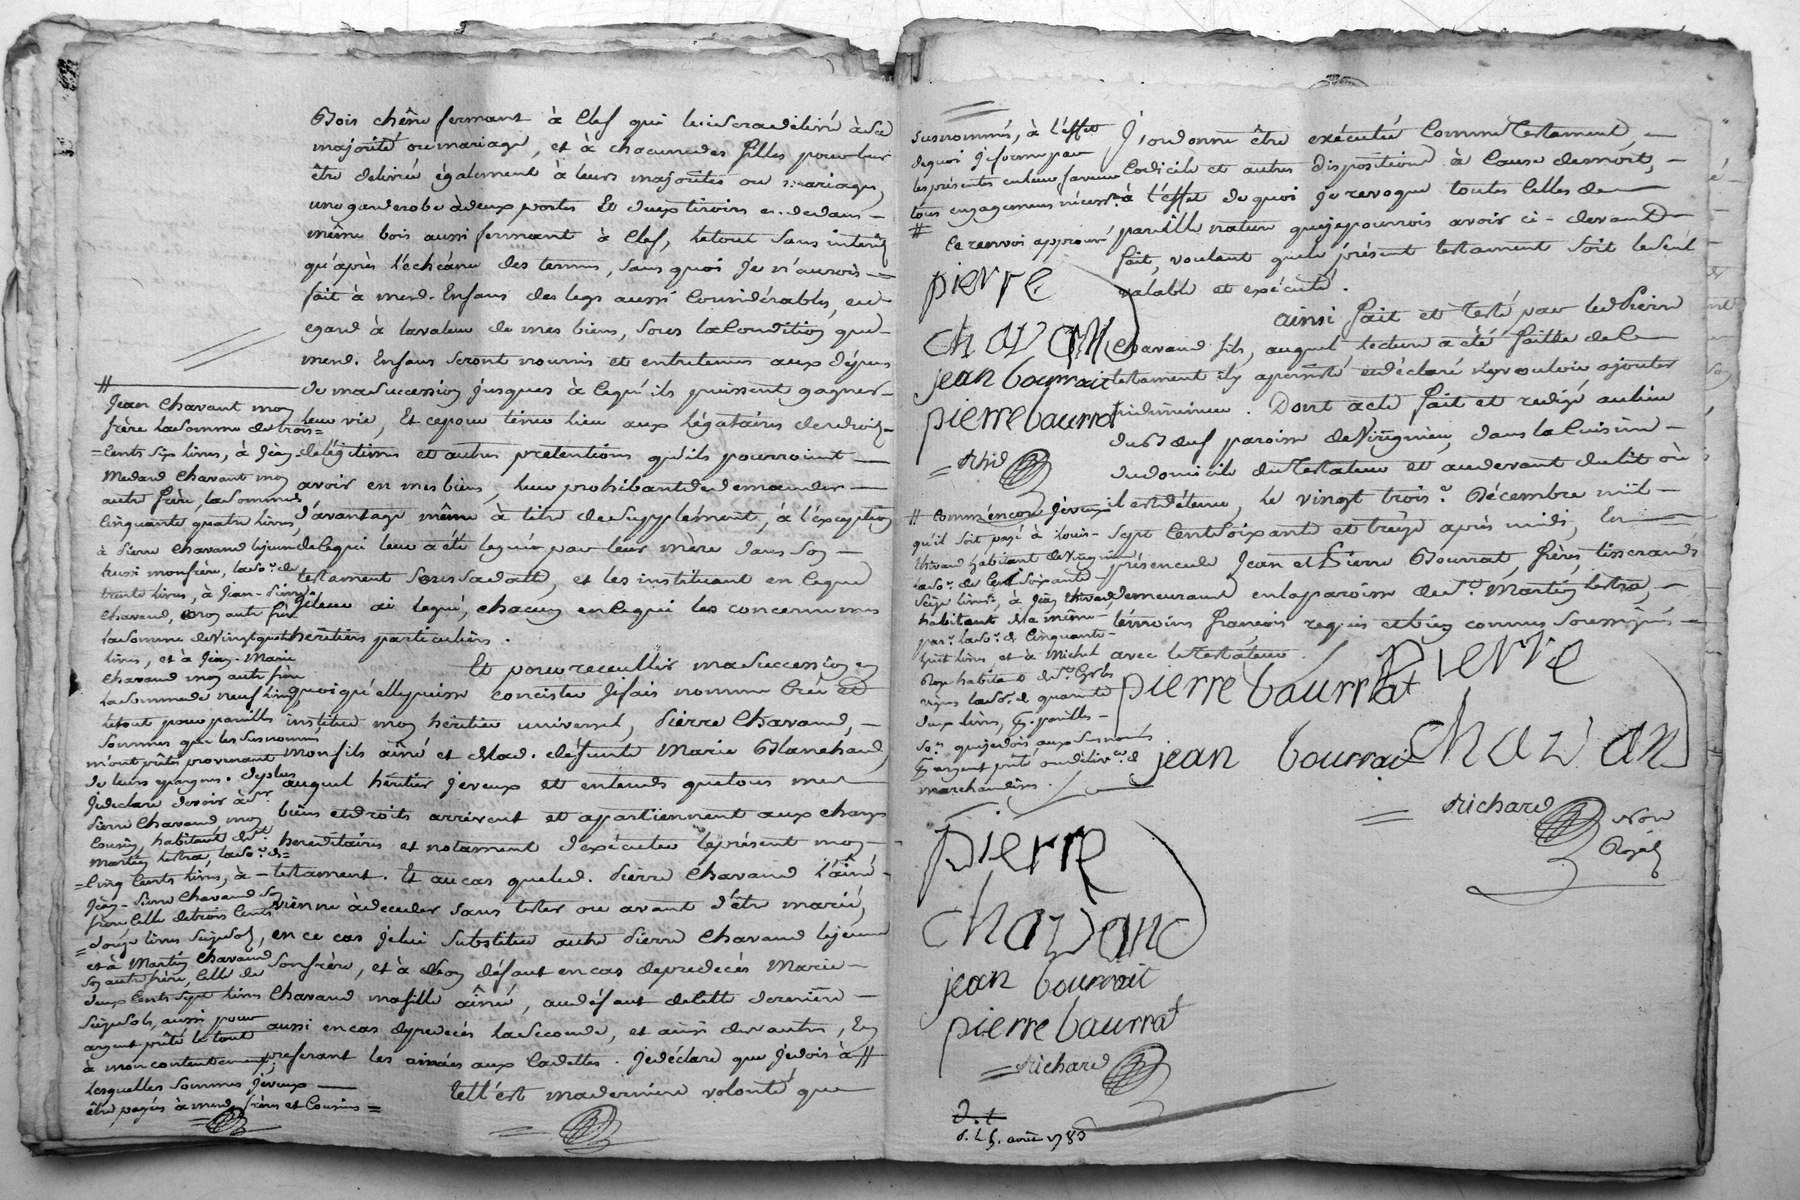 Bois chêne fermant à Clef qui lui sera délivré à sa
majorité ou mariage, et à chacune des filles pour leur
être délivrée également à leurs majorités ou mariages,
une garderobe à deux portes Et deux tiroirs en dedans
même bois aussi fermant à Clef, le tout sans interêt
qu'après l'echéance des termes, sans quoi Je n'aurois
fait à mesd. Enfans des legs aussi Considérables, eu
egard à la valeur de mes biens, sous la Condition que
mesd. Enfans seront nourris et entretenus aux dépens
de ma succession jusques à ce qu'ils puissent gagner
leur vie, Et ce pour tenir lieu aux légataires de droits
de légitimes et autres pretentions qu'ils pourroient
avoir en mes biens, leur prohibant de demander
d'avantage même à titre de supplément, à l'exception
de ce qui leur a été legué par leur mère dans son
testament sous sa datte, et les instituant en ce que
je leur ai legué, chacun en ce qui les concerne mes
héritiers particuliers.
Et pour recueillir ma succession en
quoi qu'elle puisse concister je fais nomme Crée et
institue mon héritier universel, Pierre Chavand,
mon fils aîné et de lad. défunte Marie Blanchard,
auquel héritier je veux et entends que tous mes
biens et droits arrivent et apartiennent aux charges
hereditaires et notament d'exécuter le présent mon
testament. Et au cas que led. Pierre Chavand l'aîné
vienne à deceder sans tester ou avant d'être marié,
en ce cas je lui substitue autre Pierre Chavand le jeune
son frère, et à son défaut en cas de predecès Marie
Chavand ma fille aînée, au défaut de cette derniere
aussi en cas de predecès la seconde, et ainsi des autres, En
preferant les aînées aux Cadettes. Je déclare que je dois à #
telle est ma derniere volonté que
# Jean Chavant mon
frère la somme de trois
cents six livres, à Jean
Medard Chavant mon
autre frère, la somme
cinquante quatre livres,
à Pierre Chavand le jeune
aussi mon frère, la so.e de
trente livres, à Jean-Pierre
Chavand, mon autre frère
la somme de vingt quatre
livres, et à Jean-Marie
Chavand mon autre frère
la somme de neuf livres,
le tout pour pareilles
sommes que les susnommés
m'ont prêtés provenant
de leurs epargnes. De plus
je declare devoir à Sr.
Pierre Chavand mon
Cousin, habitant de St.
Martin lestra, la so.e de
Cinq Cents livres, à
Jean-Pierre Chavand son
frère celle de trois Cents
douze livres seize sols,
et à Martin Chavand
son autre frère, celle de
deux Cents sept livres
seize sols, aussi pour
argent prêté le tout
à mon contentement,
lesquelles sommes je veux
être payées à mesd. frères et Cousins
susnommés, à l'effet
de quoi je forme par
les présentes en leur faveur
tous engagemens nécess.es
#
Ce renvoi approuvé
pierre
chavan
jean bourrait
pierre bourrat
Rhd
# Comm'encor je veux
qu'il soit payé à Louis
Thivard habitant de Virigneux
la so.e de Cent soixante
seize livres, à Jean Thivard
habitant de la même
par.e la so.e de Cinquante
huit livres et à Michel
la so.e de quarante
deux livres, pareilles
so.es que je dois aux susnommés
argent prêté ou délivr.ce de
marchandises.
pierre
chavand
jean bourrait
pierre bourrat
Richard
J'ordonne être exécutée Comme Testament,
Codicile et autres dispositions à Cause de mort,
à l'effet de quoi je revoque toutes Celles de
pareille nature que je pourrois avoir ci-devant
fait, voulant que le présent testament soit le seul
valable et exécuté.
ainsi fait et testé par led Pierre
Chavand fils, auquel lecture a été faitte de ce
testament il y a persisté et déclaré n'y vouloir ajouter
ni diminuer. Dont acte fait et redigé au lieu
du Beuf paroisse de Virigneux, dans la Cuisine
du domicile du testateur et au devant du lit où
il est détenu, le vingt trois.e Décembre mil
sept Cent soixante et treize après midi, En
présence de Jean et Pierre Bourrat, frères, tisserands
demeurant en la paroisse de St. Martin lestra,
témoins francois requis et bien connus soussignés
avec le testateur.
pierre bourrat pierre
jean bourrait chavan
Richard Nore
Royal